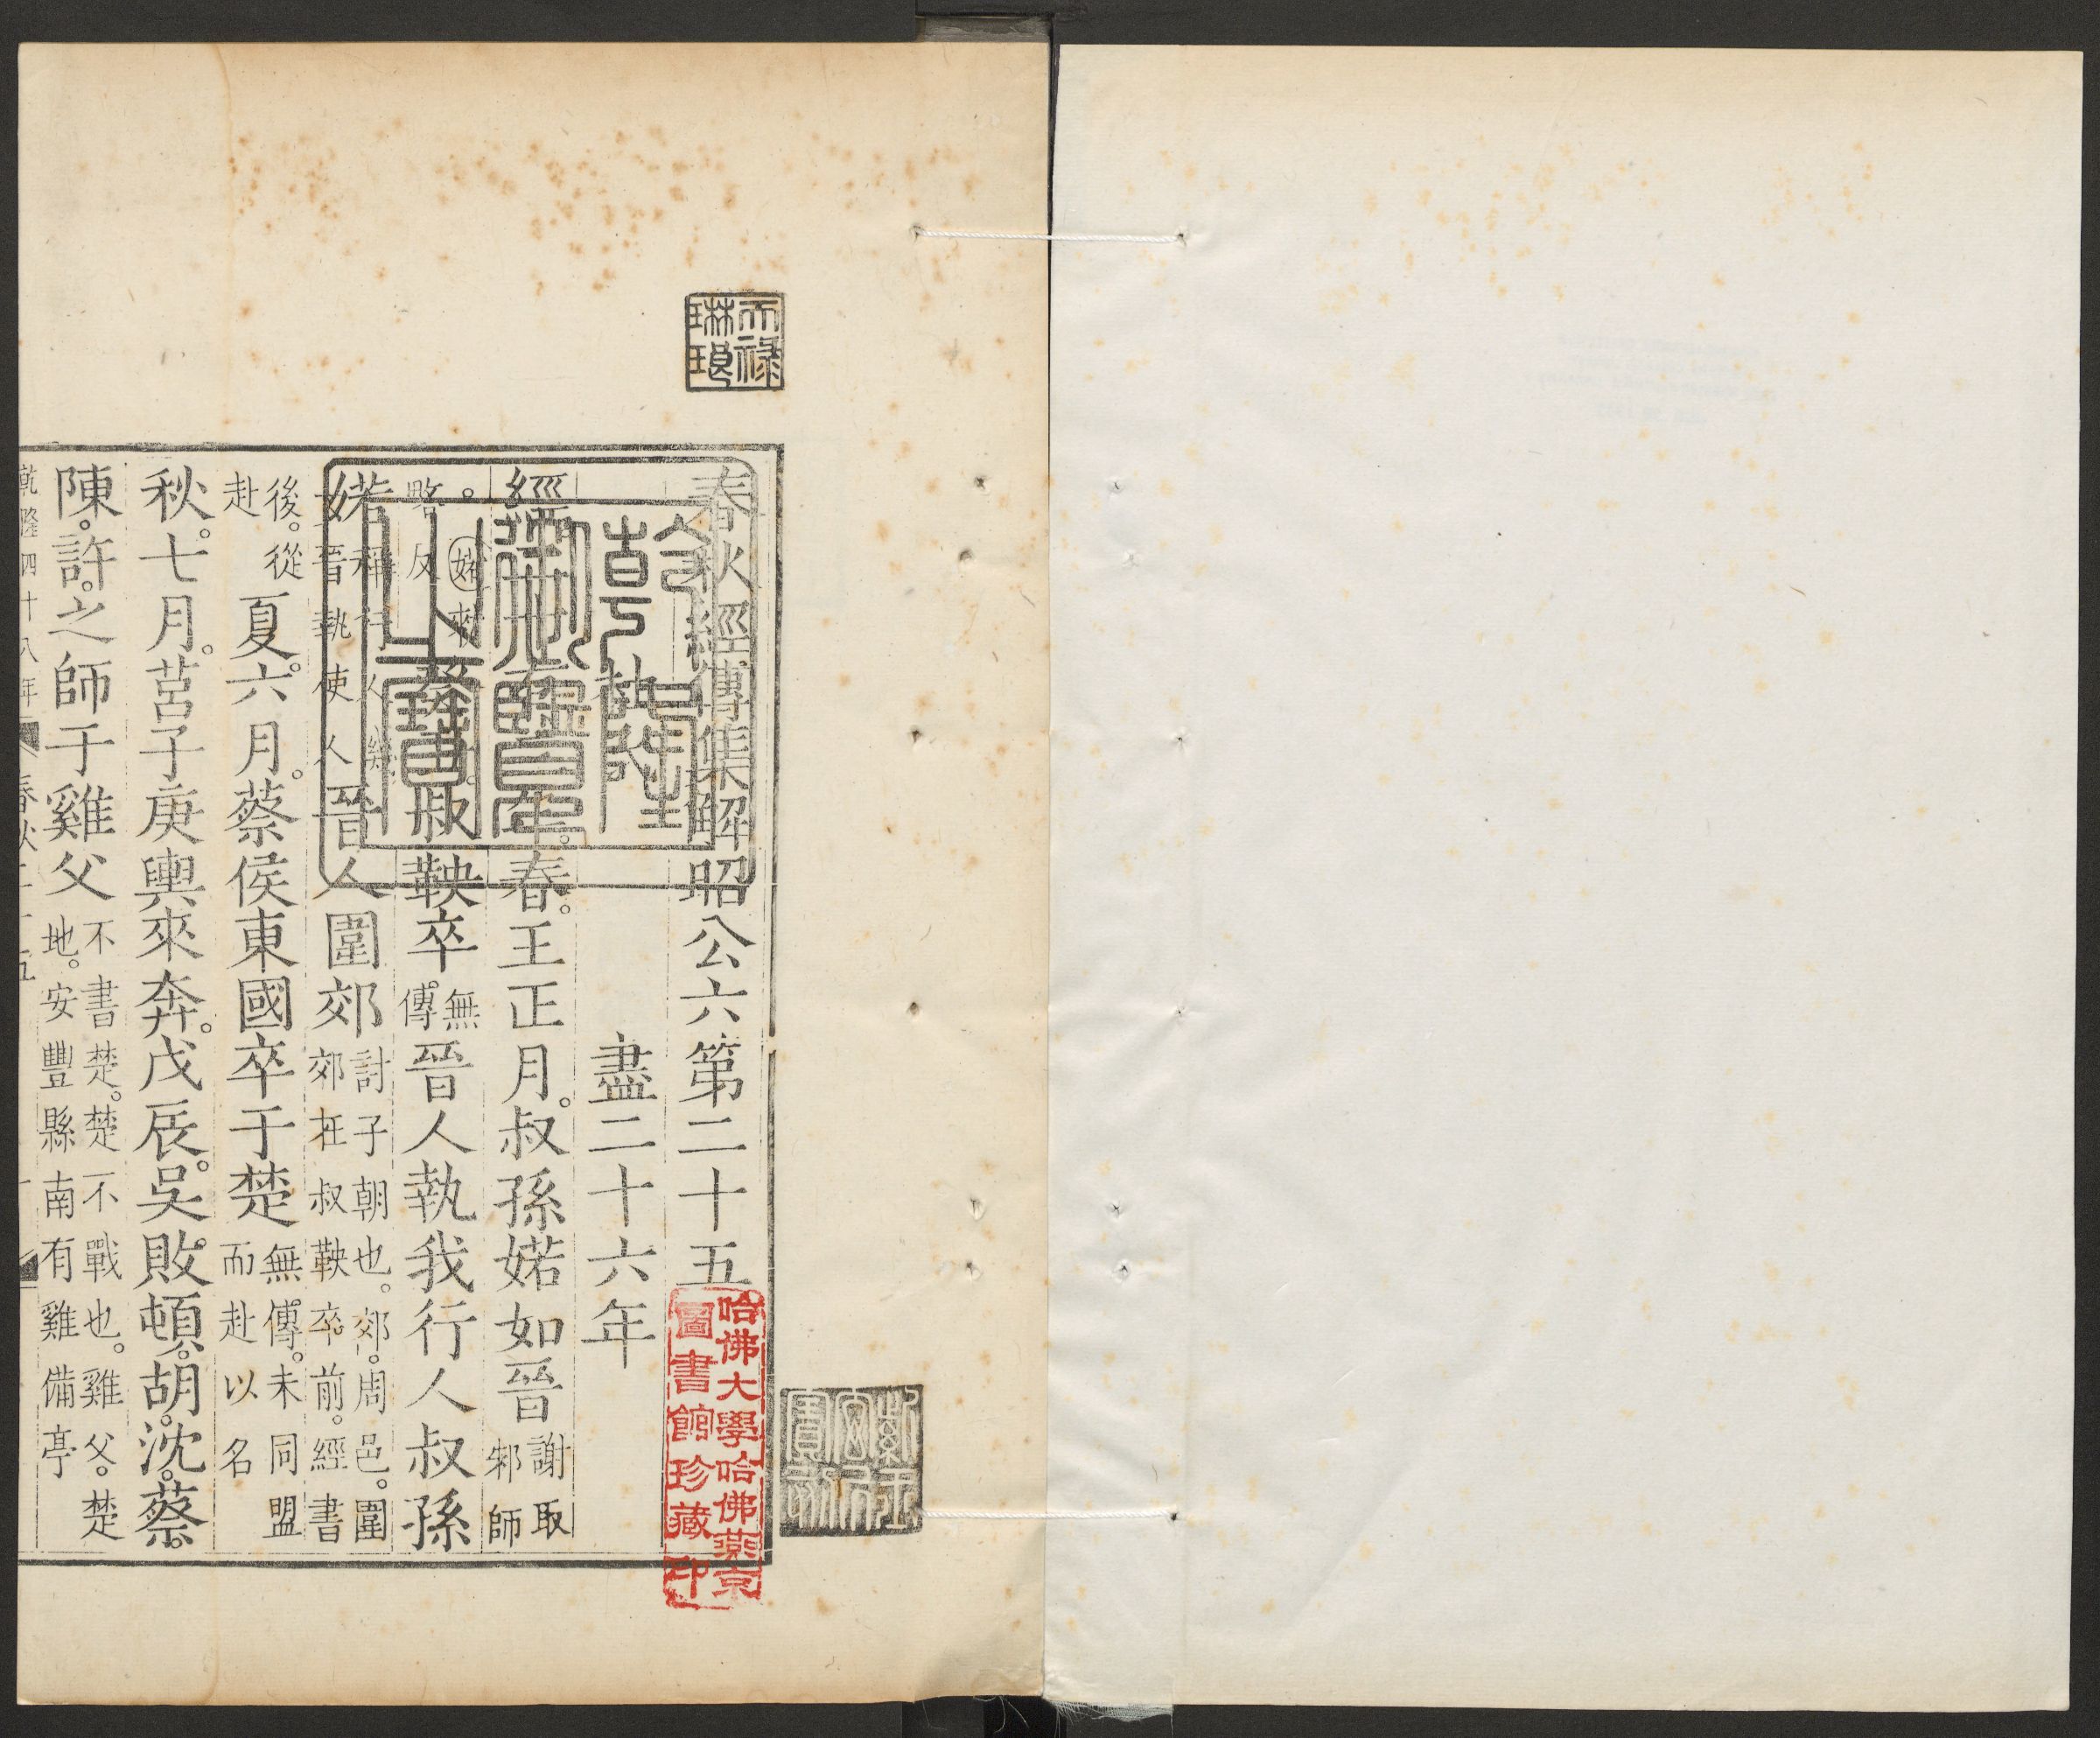 春秋經傳集解昭公六第二十五
盡二十六年
經二十有三年。春。王正月。叔孫婼如晉謝取邾師
。婼 略反 癸丑。叔鞅卒無傳。晉人執我行人叔孫
婼稱行人譏晉執使人晉人圍郊討子朝也。郊。周邑。圍郊在叔鞅卒前。經書
後。從赴夏。六月。蔡侯東國卒于楚無傳。未同盟而赴以名
秋。七月。莒子庚輿來奔。戊辰。吳敗頓。胡。沈。蔡。
陳。許。之師于雞父不書楚。楚不戰也。雞父。楚地。安豐縣南有雞備亭
乾隆四十八年
天祿琳琅
哈佛大學哈佛燕京
圖書館珍藏印